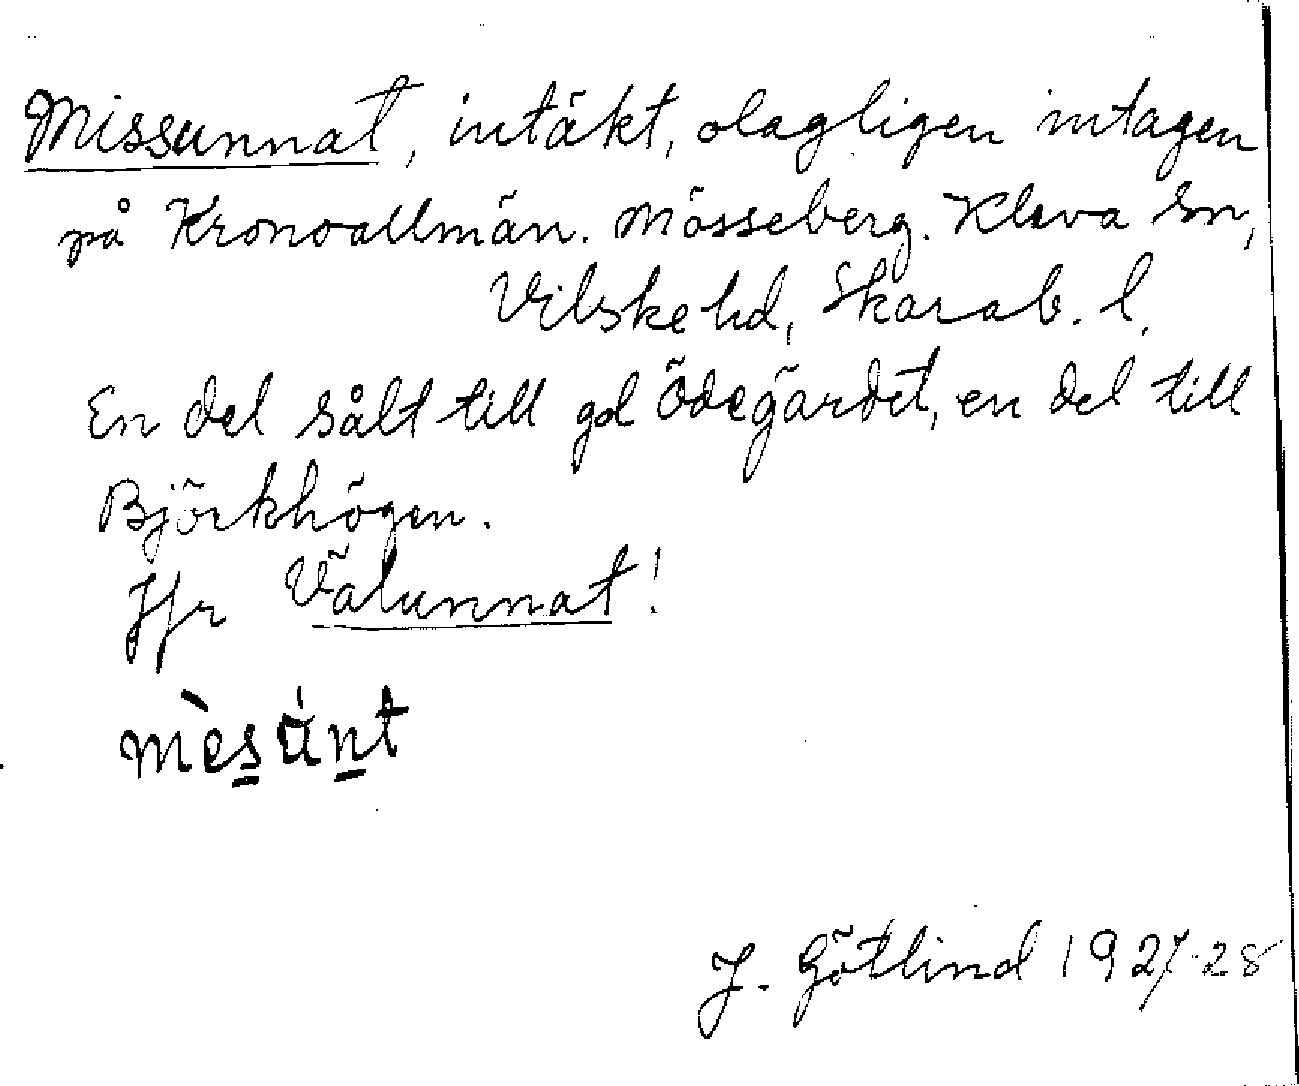 Missunnat, intäkt, olagligen intagen
på Kronoallmän. Mösseberg. Kleva sn,
Vilske hd, Skarab. l.
En del sålt till gd Ödegärdet, en del till
Björkhögen.
Jfr Välunnat!
mès̲ún̲t
J. Götlind 1927-28